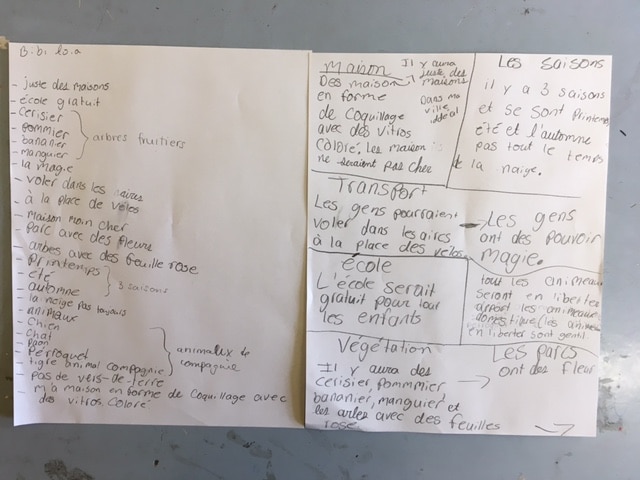 B.bi lo.a
- juste des maisons
- école gratuit
- cerisier
- pommier
- bananier
- manguier
arbres fruitiers
- la magie
- voler dans les aires
- à la place de vélos
- maison moin cher
- parc avec des fleurs
- arbes avec des feuille rose
- Printemps
- été
- automne
3 saisons
- la neige pas toujours
- animaux
- chien
- chat
- paon
- Perroquet
- tigre animal compagnie
animalux de compagnie
- pas de vers-de-terre
- m'a maison en forme de coquillage avec
des vitros coloré
Maison
Il y aura
juste des
maisons
Dans ma
ville
idéal
Des maison
en forme
de coquilage
avec des vitros
coloré. les maison
ne seraient pas cher
Les saisons
il y a 3 saisons
et se sont printemps
été et l'automne
pas tout le temps
de la naige.
Transport
Les gens pourraient
voler dans les aires
à la place des velos.
Les gens
ont des pouvoir
magie.
école
L'école serait
gratuit pour tout
les enfants
tout les animeau
seront en liberter
appart les animeaux
domestique (les animeau
en liberter sont gentil
Végétation
Il y aura des
cerisier, pommmier
bananier, manguier et
les arles avec des feuilles
rose
Les parcs
ont des fleur